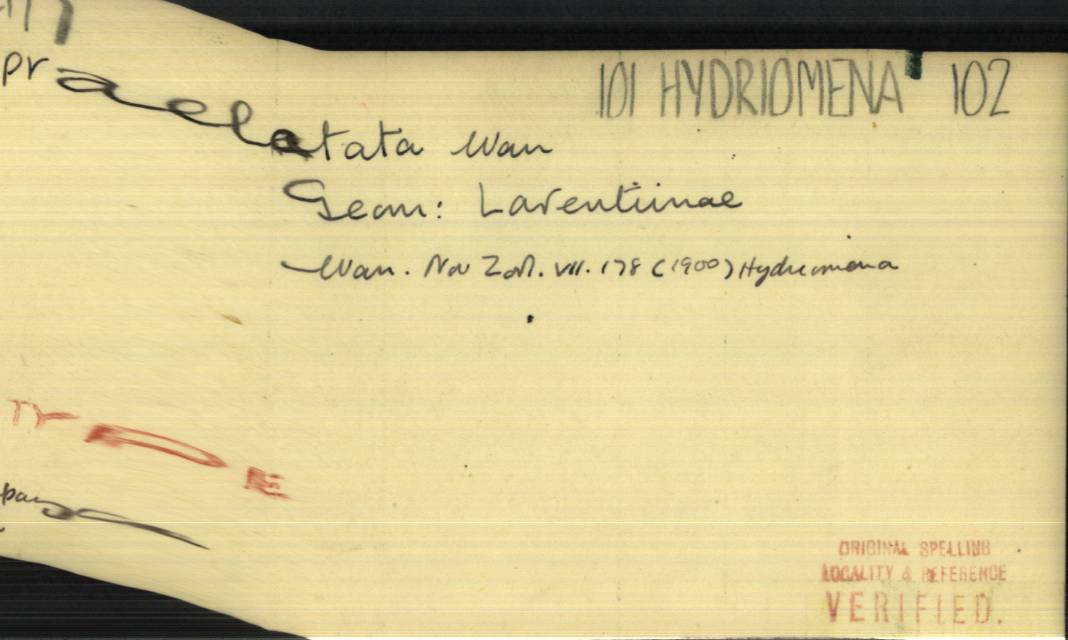 101 HYDRIOMENA 102
praelatata Warr
Geom: Larentiinae
Warr. Nov Zool. VII. 178 (1900) Hydriomena
TYPE
ORIGINAL SPELLING
LOCALITY & REFERENCE
VERIFIED.